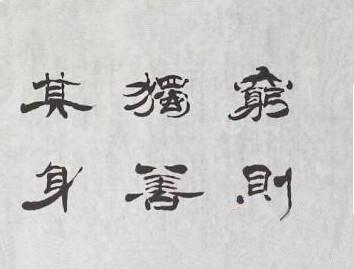 窮則
獨善
其身